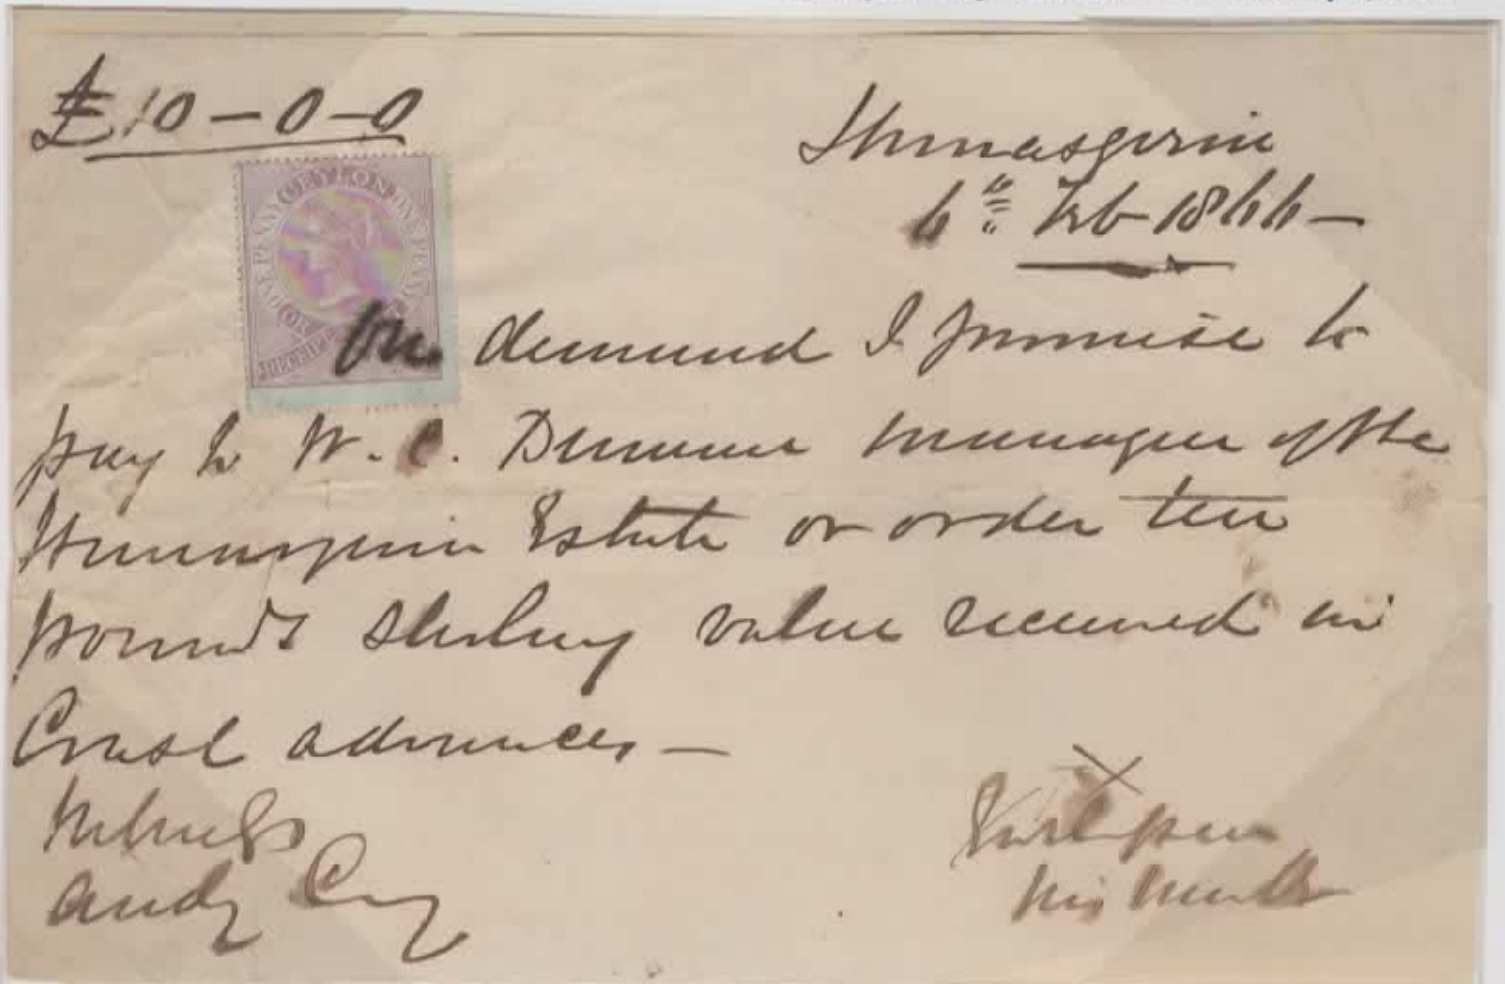 £10-0-0
Hunasgeria
6th Feb 1866-
CEYLON ONE PENNY ONE PENNY
OR
RECEIPT
On demand I promise to
pay to W. C. manager of the
Hunasgeria Estate or order ten
pounds sterling value received in
Coast advances-
X
Witness
his mark
Andy